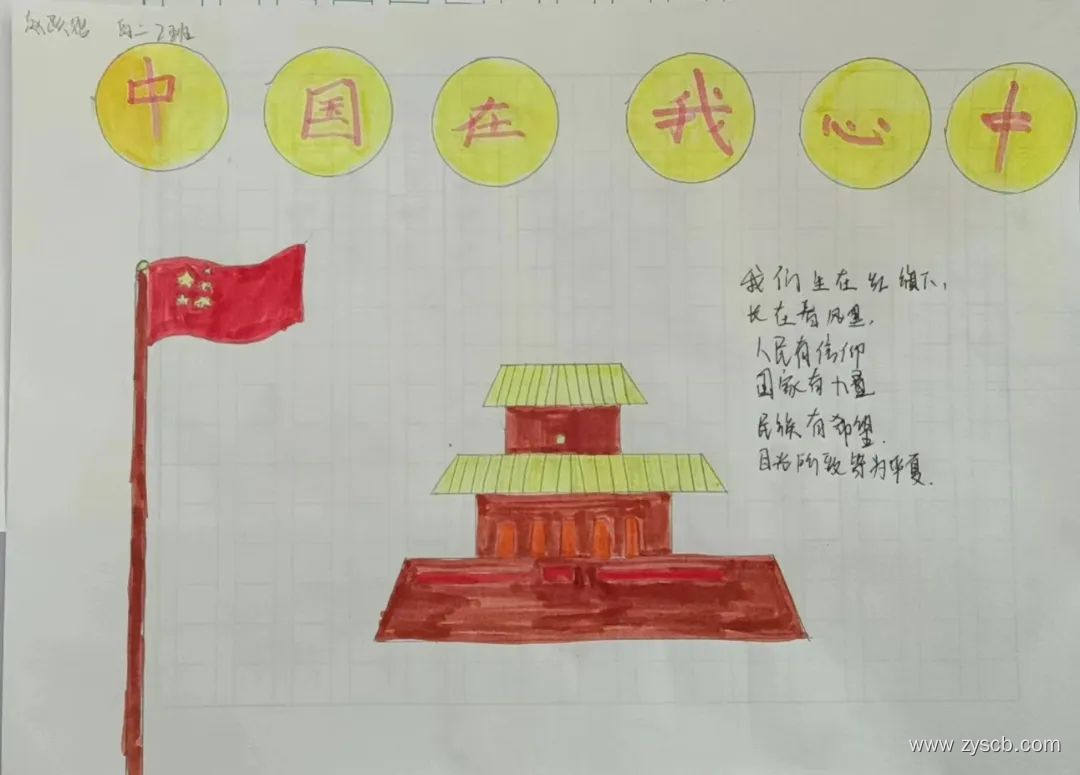 高二2班
中国在我心中
我们生在红旗下,
长在春风里,
人民有信仰
国家有力量
民族有希望.
目光所致皆为华夏.
www.zyscb.com